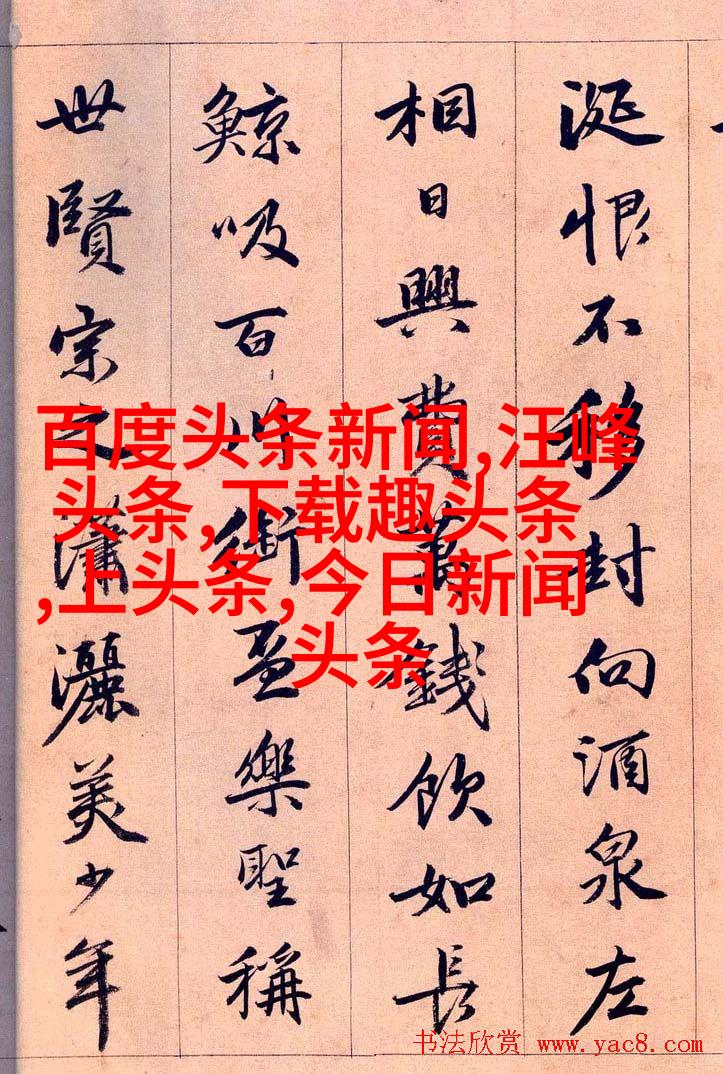 涎恨不移封向酒泉左
相日興費萬錢飲如長
鯨吸百川銜盃樂聖稱
世賢宗之瀟灑美少年
百度头条新闻,汪峰
头条,下载趣头条
,上头条,今日新闻
头条
书法欣赏 www.yac8.com